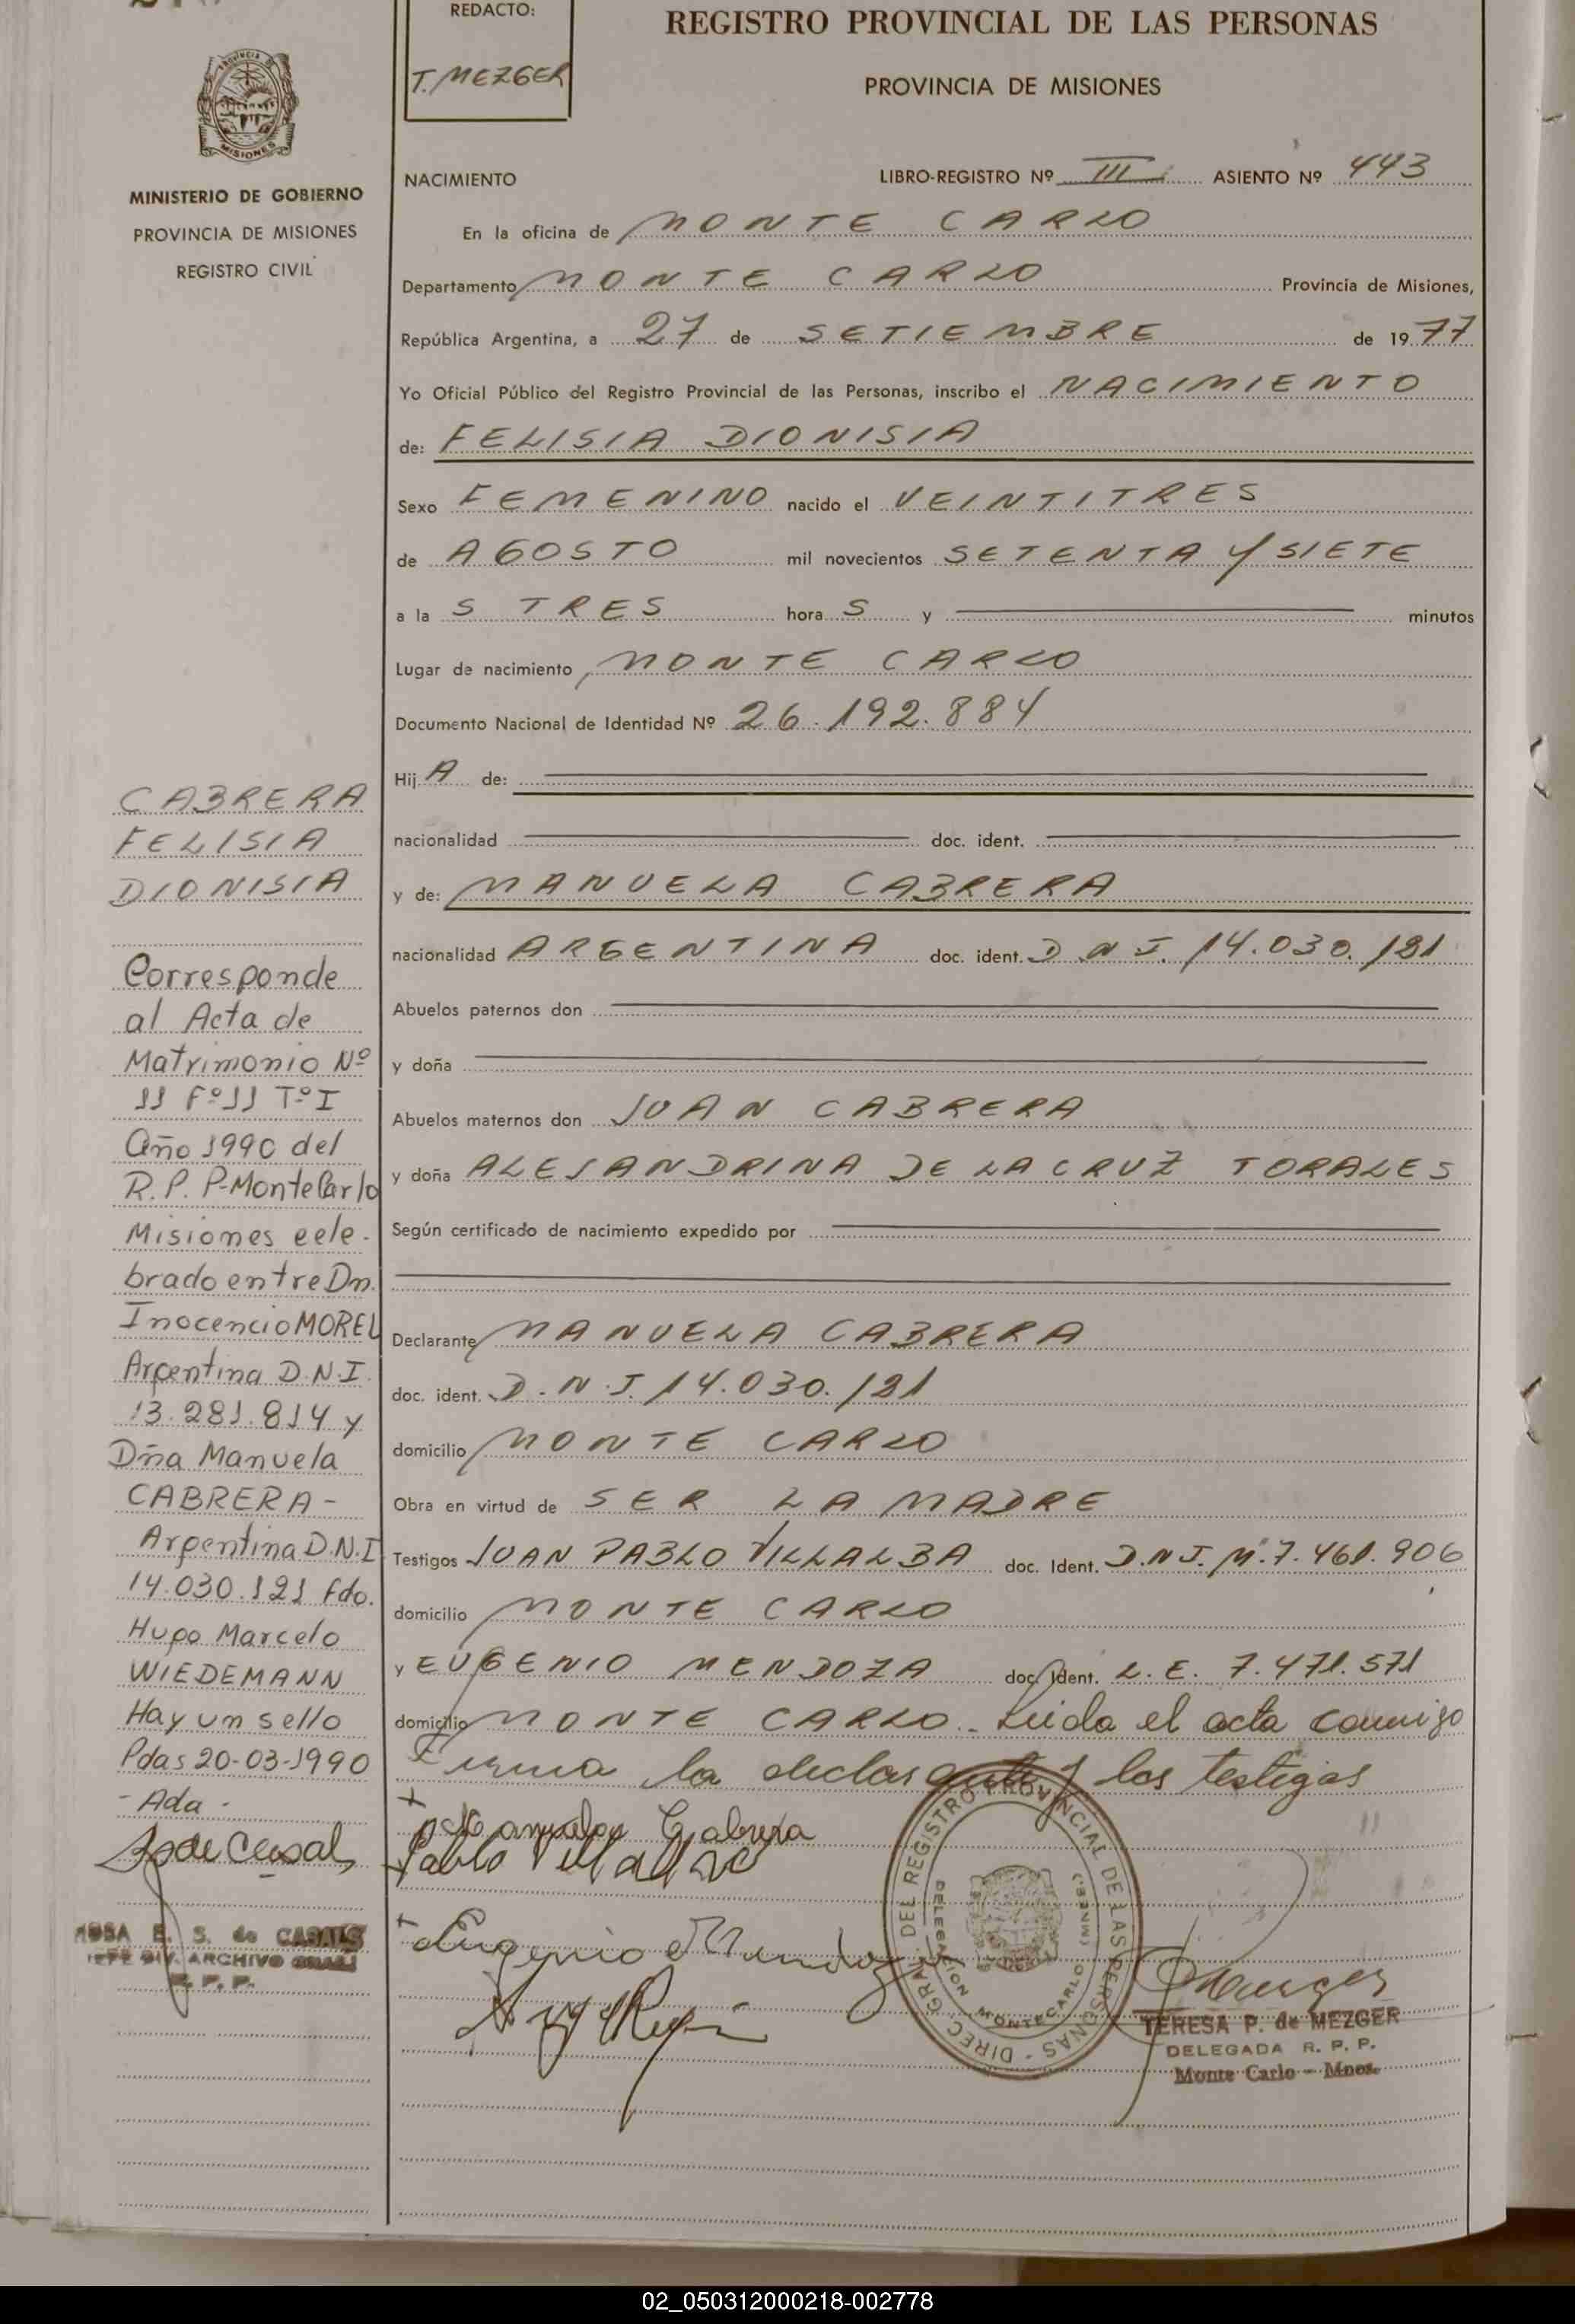 REDACTO:
T. MEZGER
REGISTRO PROVINCIAL DE LAS PERSONAS
PROVINCIA DE MISIONES
PROVINCIA DE
MISIONES
MINISTERIO DE GOBIERNO
PROVINCIA DE MISIONES
REGISTRO CIVIL
NACIMIENTO
LIBRO-REGISTRO Nº III ASIENTO Nº 443
En la oficina de MONTE CARLO
Departamento MONTE CARLO Provincia de Misiones,
República Argentina, a 27 de SETIEMBRE de 1977
Yo Oficial Público del Registro Provincial de las Personas, inscribo el NACIMIENTO
de: FELISIA DIONISIA
Sexo FEMENINO nacido el VEINTITRES
de AGOSTO mil novecientos SETENTA Y SIETE
a la S TRES hora S y minutos
Lugar de nacimiento MONTE CARLO
Documento Nacional de Identidad Nº 26.192.884
Hij A de:
nacionalidad doc. ident.
y de: MANUELA CABRERA
nacionalidad ARGENTINA doc. ident. D.N.I. 14.030.121
Abuelos paternos don
y doña
Abuelos maternos don JUAN CABRERA
y doña ALEJANDRINA DE LA CRUZ TORALES
Según certificado de nacimiento expedido por
Declarante MANUELA CABRERA
doc. ident. D.N.I. 14.030.121
domicilio MONTE CARLO
Obra en virtud de SER LA MADRE
Testigos JUAN PABLO VILLALBA doc. Ident. D.N.I. M.7.461.906
domicilio MONTE CARLO
y EUGENIO MENDOZA doc. Ident. L.E. 7.471.571
domicilio MONTE CARLO - Leida el acta conmigo
Firma la declarante y los testigos
Cabrera
Pablo Villalba
Eugenio Mendoza
Mezger
DIREC. GRAL. DEL REGISTRO PROVINCIAL DE LAS PERSONAS
DELEGACION MONTECARLO
TERESA P. de MEZGER
DELEGADA R. P. P.
Monte Carlo - Mnes.
CABRERA
FELISIA
DIONISIA
Corresponde
al Acta de
Matrimonio Nº
11 Fº11 Tº I
Año 1990 del
R.P.P-MonteCarlo
Misiones cele-
brado entre Dn.
Inocencio MOREL
Argentina D.N.I.
13.281.814 y
Dña Manuela
CABRERA-
Argentina D.N.I
14.030.121 fdo.
Hugo Marcelo
WIEDEMANN
Hay un sello
Pdas 20-03-1990
- Ada -
ROSA E. S. de CASALS
JEFE DIV. ARCHIVO GRAL.
R. P. P.
02_050312000218-002778